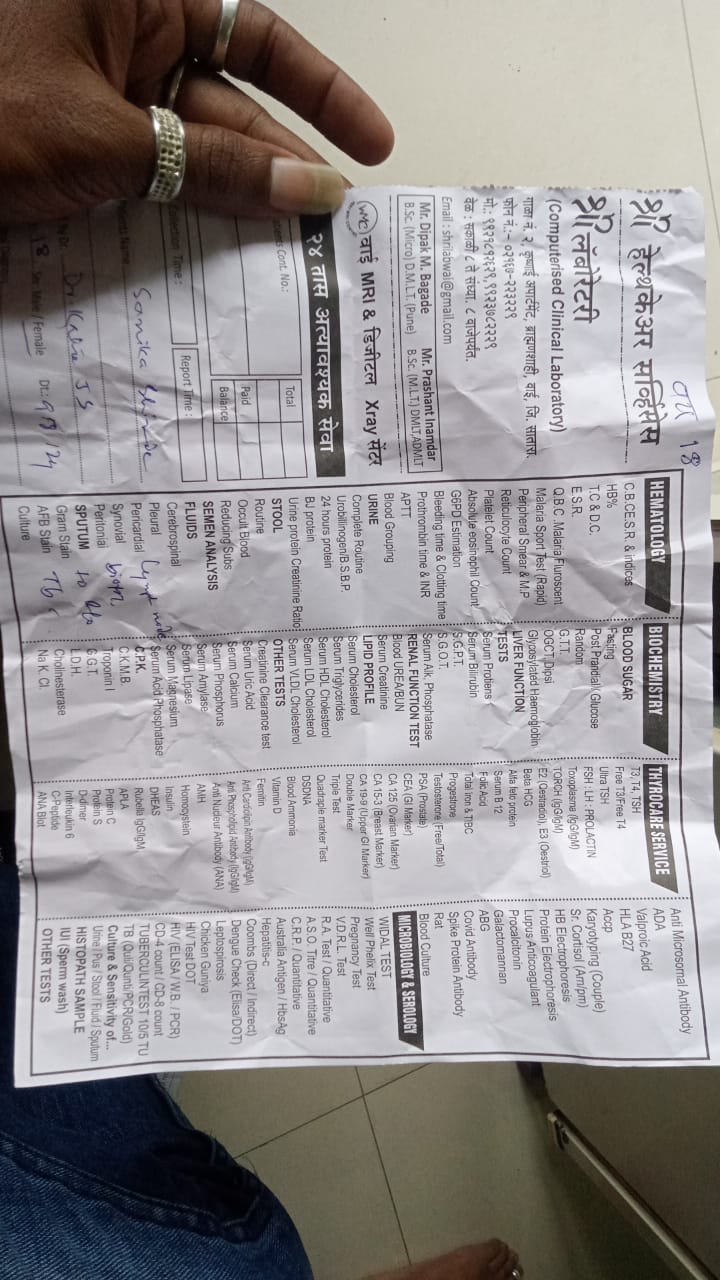 वय 18
श्री हेल्थकेअर सर्व्हिसेस
श्री लॅबोरेटरी
(Computerised Clinical Laboratory)
गाळा नं. २, कृष्णाई अपार्टमेंट, ब्राह्मणशाही, वाई, जि. सातारा.
फोन नं.:- ०२१६७-२२३२२१
वेळ : सकाळी ८ ते संध्या. ८ वाजेपर्यंत.
Email : shriabwai@gmail.com
Mr. Dipak M. Bagade
B.Sc. (Micro) D.M.L.T. (Pune)
Mr. Prashant Inamdar
B.Sc. (M.L.T.) DMLT, ADMLT
(WC) वाई MRI & डिजीटल Xray सेंटर
२४ तास अत्यावश्यक सेवा
Cont. No.:
Total
Paid
Balance
Collection Time :
Report Time :
Name :
Sex Male / Female
18
Dt.:
HEMATOLOGY
C.B.C E.S.R. & indices
HB%
T.C & D.C.
E.S.R.
Q.B.C. Malaria Flurosent
Malaria Sport Test (Rapid)
Peripheral Smear & M.P
Reticulocyte Count
Platelet Count
Absolute eosinophil Count
G6PD Estimation
Bleeding time & Clotting time
Prothrombin time & INR
APTT
Blood Grouping
URINE
Complete Routine
Urobilinogen/B.S.B.P.
24 hours protein
BJ protein
Urine protein Creatinine Ratio
STOOL
Routine
Occult Blood
Reducing Subs
SEMEN ANALYSIS
FLUIDS
Cerebrospinal
Pleural
Pericardial
Synovial
Peritonial
SPUTUM
Gram Stain
AFB Stain
Culture
Lymph node
Tb
BIOCHEMISTRY
BLOOD SUGAR
Fasting
Post Prandial / Glucose
Random
G.T.T.
OGCT, Dipsi
Glycosylated Haemoglobin
LIVER FUNCTION
TESTS
Serum Protiens
Serum Bilirubin
S.G.P.T.
S.G.O.T.
Serum Alk. Phosphatase
RENAL FUNCTION TEST
Blood UREA/BUN
Serum Creatinine
LIPID PROFILE
Serum Cholesterol
Serum Triglycerides
Serum HDL Cholesterol
Serum LDL Cholesterol
Serum VLDL Cholesterol
OTHER TESTS
Creatinine Clearance test
Serum Uric Acid
Serum Calcium
Serum Phosphorus
Serum Amylase
Serum Lipase
Serum Magnesium
Serum Acid Phosphatase
C.P.K.
C.K.M.B.
Troponin I
G.G.T.
L.D.H.
Cholinesterase
Na K. Cl.
THYROCARE SERVICE
T3, T4, TSH
Free T3/Free T4
Ultra TSH
FSH : LH : PROLACTIN
Toxoplasma (IgG/IgM)
TORCH (IgG/IgM)
E2 (Oestradiol), E3 (Oestriol)
Beta HCG
Alfa feto protein
Serum B 12
Folic Acid
Total Iron & TIBC
Progestrone
Testosterone (Free/Total)
PSA (Prosate)
CEA (GI Marker)
CA 125 (Ovarian Marker)
CA 15-3 (Breast Marker)
CA 19-9 (Upper GI Marker)
Double Marker
Triple Test
Quadraple marker Test
DSDNA
Blood Ammonia
Vitamin D
Ferritin
Anti Cardiolipin Antibody (IgG/IgM)
Anti Phospholipid Antibody (IgG/IgM)
Anti Nuclear Antibody (ANA)
AMH
Homocystein
Insulin
DHEAS
Rubella IgG/IgM
APLA
Protein C
Protein S
D-dimer
Interleukin 6
C-Peptide
ANA Blot
Anti Microsomal Antibody
ADA
Valproic Acid
HLA B27
Accp
Karyotyping (Couple)
Sr. Cortisol (Am/pm)
HB Electrophoresis
Protein Electrophoresis
Lupus Anticoagulant
Procalcitonin
Galactomannan
ABG
Covid Antibody
Spike Protein Antibody
Rat
Blood Culture
MICROBIOLOGY & SEROLOGY
WIDAL TEST
Weil Phelix Test
Pregnancy Test
V.D.R.L. Test
R.A. Test / Quantitative
A.S.O. Titre / Quantitative
C.R.P. / Quantitative
Australia Antigen / HbsAg
Hepatitis-c
Coombs (Direct / Indirect)
Dengue Check (Elisa/DOT)
Leptospirosis
Chicken Gunya
HIV Test DOT
HIV (ELISA / W.B. / PCR)
CD-4 count / CD-8 count
TUBERCULIN TEST 10/5 TU
TB (Quli/Quanti/PCR/Gold)
Culture & Sensitivity of...
Urine / Pus / Stool / Fluid / Sputum
HISTOPATH SAMPLE
IUI (Sperm wash)
OTHER TESTS